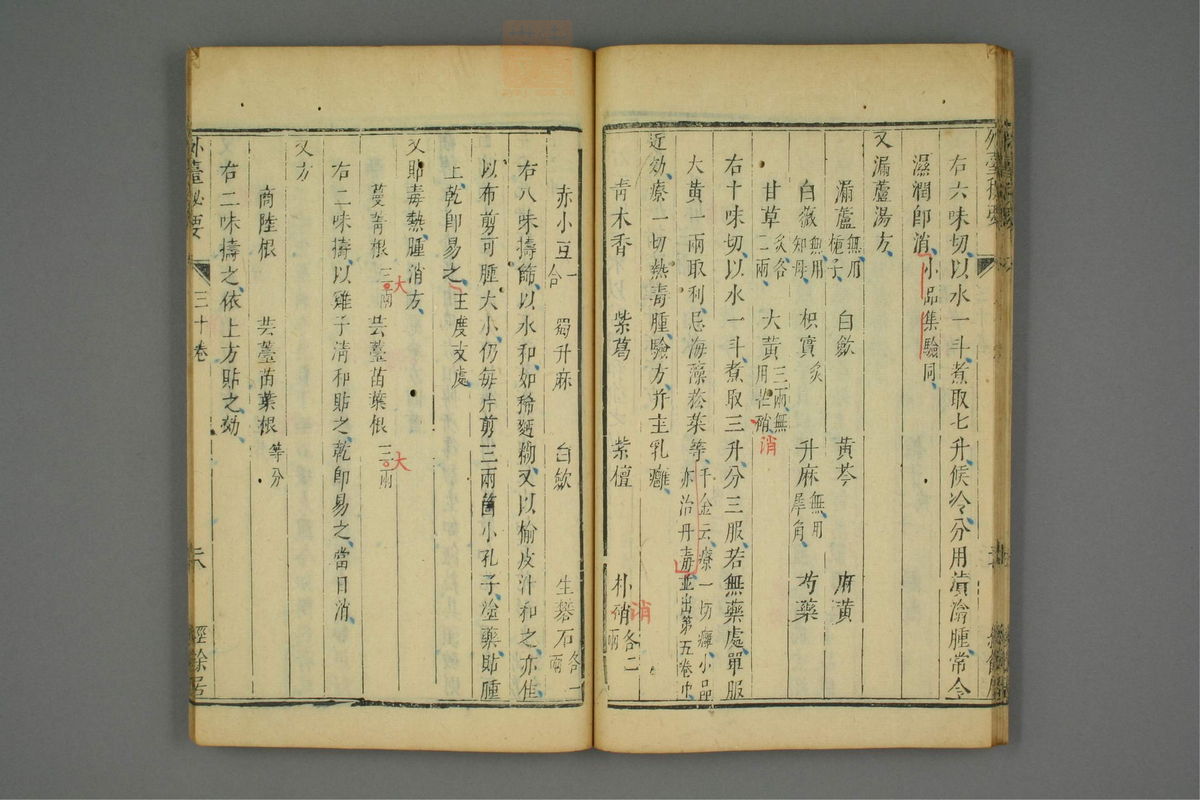 外臺秘要
右六味切以水一斗煮取七升候冷分用漬㵸腫常令
濕潤即消小品集驗同
又漏蘆湯方
漏蘆無用梔子 白歛 黃芩 麻黃
白薇無用知母 枳實炙 升麻無用犀角 芍藥
甘草炙各二兩 大黃三兩無用芒硝 消
右十味切以水一斗煮取三升分三服若無藥處單服
大黃一兩取利忌海藻菘菜等千金云療一切癰小品亦治丹毒並出第五卷中
近効療一切熱毒腫驗方并主乳癰
青木香 紫葛 紫檀 朴硝各二兩 消
赤小豆一合 蜀升麻 白歛 生礬石各一兩
右八味擣篩以水和如稀麵糊又以榆皮汁和之亦佳
以布剪可腫大小仍每片剪三兩箇小孔子塗藥貼腫
上乾即易之王度支處
又貼毒熱腫消方
蔓菁根三大兩 芸薹苗葉根三大兩
右二味擣以雞子清和貼之乾即易之當日消
又方
商陸根 芸薹苗葉根等分
右二味擣之依上方貼之効
外臺秘要 三十卷 經餘居